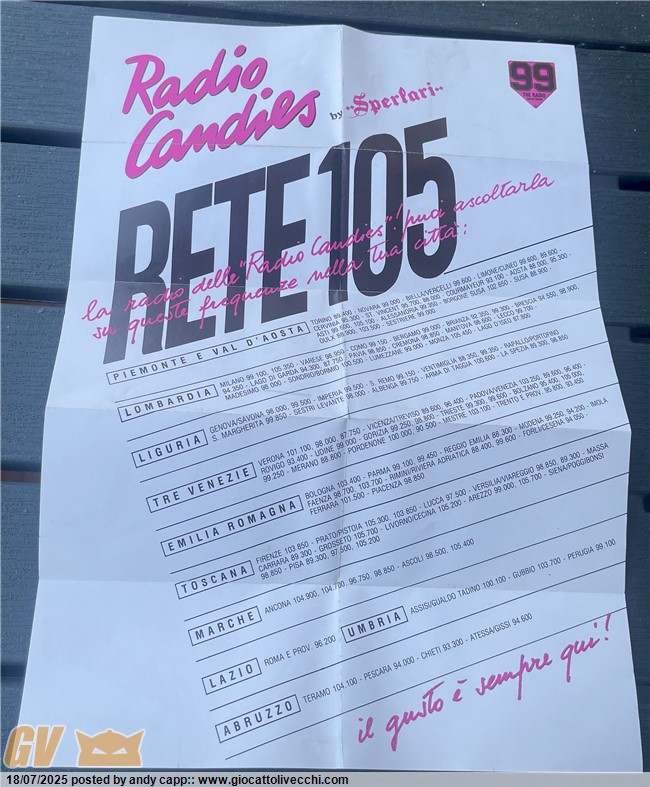 Radio
Candies
by "Sperlari"
99
THE RADIO
RETE 105
la radio delle "Radio Candies"! puoi ascoltarla
su queste frequenze nella tua città:
PIEMONTE E VAL D'AOSTA
TORINO 89.400 - NOVARA 99.000 - BIELLA/VERCELLI 99.600 - LIMONE/CUNEO 99.600, 89.600 -
CERVINIA 95.300 - ST. VINCENT 95.700, 88.000 - COURMAYEUR 93.100 - AOSTA 88.000, 95.300 -
ASTI 99.600, 105.700 - ALESSANDRIA 99.350 - BORGONE SUSA 102.650 - SUSA 88.900 -
OULX 88.900, 103.500 - SESTRIERE 99.000
LOMBARDIA
MILANO 99.100, 105.350 - VARESE 98.950 - COMO 99.150 - BERGAMO 99.000 - BRIANZA 92.350, 99.500 - BRESCIA 94.550, 98.900,
94.350 - LAGO DI GARDA 94.300, 87.750 - PAVIA 98.850 - CREMONA 98.850 - MANTOVA 98.600 - LECCO 99.700 -
MADESIMO 98.000 - SONDRIO/BORMIO 100.500 - LUMEZZANE 99.000 - MONZA 105.450 - LAGO D'ISEO 87.800
LIGURIA
GENOVA/SAVONA 98.000, 99.500 - IMPERIA 99.500 - S. REMO 99.150 - VENTIMIGLIA 88.350, 99.350 - RAPALLO/PORTOFINO
S. MARGHERITA 99.850 - SESTRI LEVANTE 98.000 - ALBENGA 99.750 - ARMA DI TAGGIA 100.600 - LA SPEZIA 89.300, 98.850
TRE VENEZIE
VERONA 101.100, 98.000, 87.750 - VICENZA/TREVISO 89.600, 96.400 - PADOVA/VENEZIA 103.350, 89.600, 96.400 -
ROVIGO 93.400 - UDINE 99.000 - GORIZIA 99.250, 98.800 - TRIESTE 99.300, 99.600 - BOLZANO 95.400, 105.000,
99.250 - MERANO 88.800 - PORDENONE 100.000, 90.500 - MESTRE 103.100 - TRENTO E PROV. 95.800, 93.450
EMILIA ROMAGNA
BOLOGNA 103.400 - PARMA 99.100, 99.450 - REGGIO EMILIA 88.300 - MODENA 99.250, 94.200 - IMOLA
FAENZA 98.700, 103.700 - RIMINI/RIVIERA ADRIATICA 88.400, 99.600 - FORLI/CESENA 94.050 -
FERRARA 101.500 - PIACENZA 98.850
TOSCANA
FIRENZE 103.850 - PRATO/PISTOIA 105.300, 103.850 - LUCCA 97.500 - VERSILIA/VIAREGGIO 98.850, 89.300 - MASSA
CARRARA 89.300 - GROSSETO 105.700 - LIVORNO/CECINA 105.200 - AREZZO 99.000, 105.700 - SIENA/POGGIBONSI
98.850 - PISA 89.300, 97.500, 105.200
MARCHE
ANCONA 104.900, 104.700, 96.750, 98.850 - ASCOLI 98.500, 105.400
UMBRIA
ASSISI/GUALDO TADINO 100.100 - GUBBIO 103.700 - PERUGIA 99.100
LAZIO
ROMA E PROV. 96.200
ABRUZZO
TERAMO 104.100 - PESCARA 94.000 - CHIETI 93.300 - ATESSA/GISSI 94.600
il gusto è sempre qui!
GV
18/07/2025 posted by andy capp:: www.giocattolivecchi.com